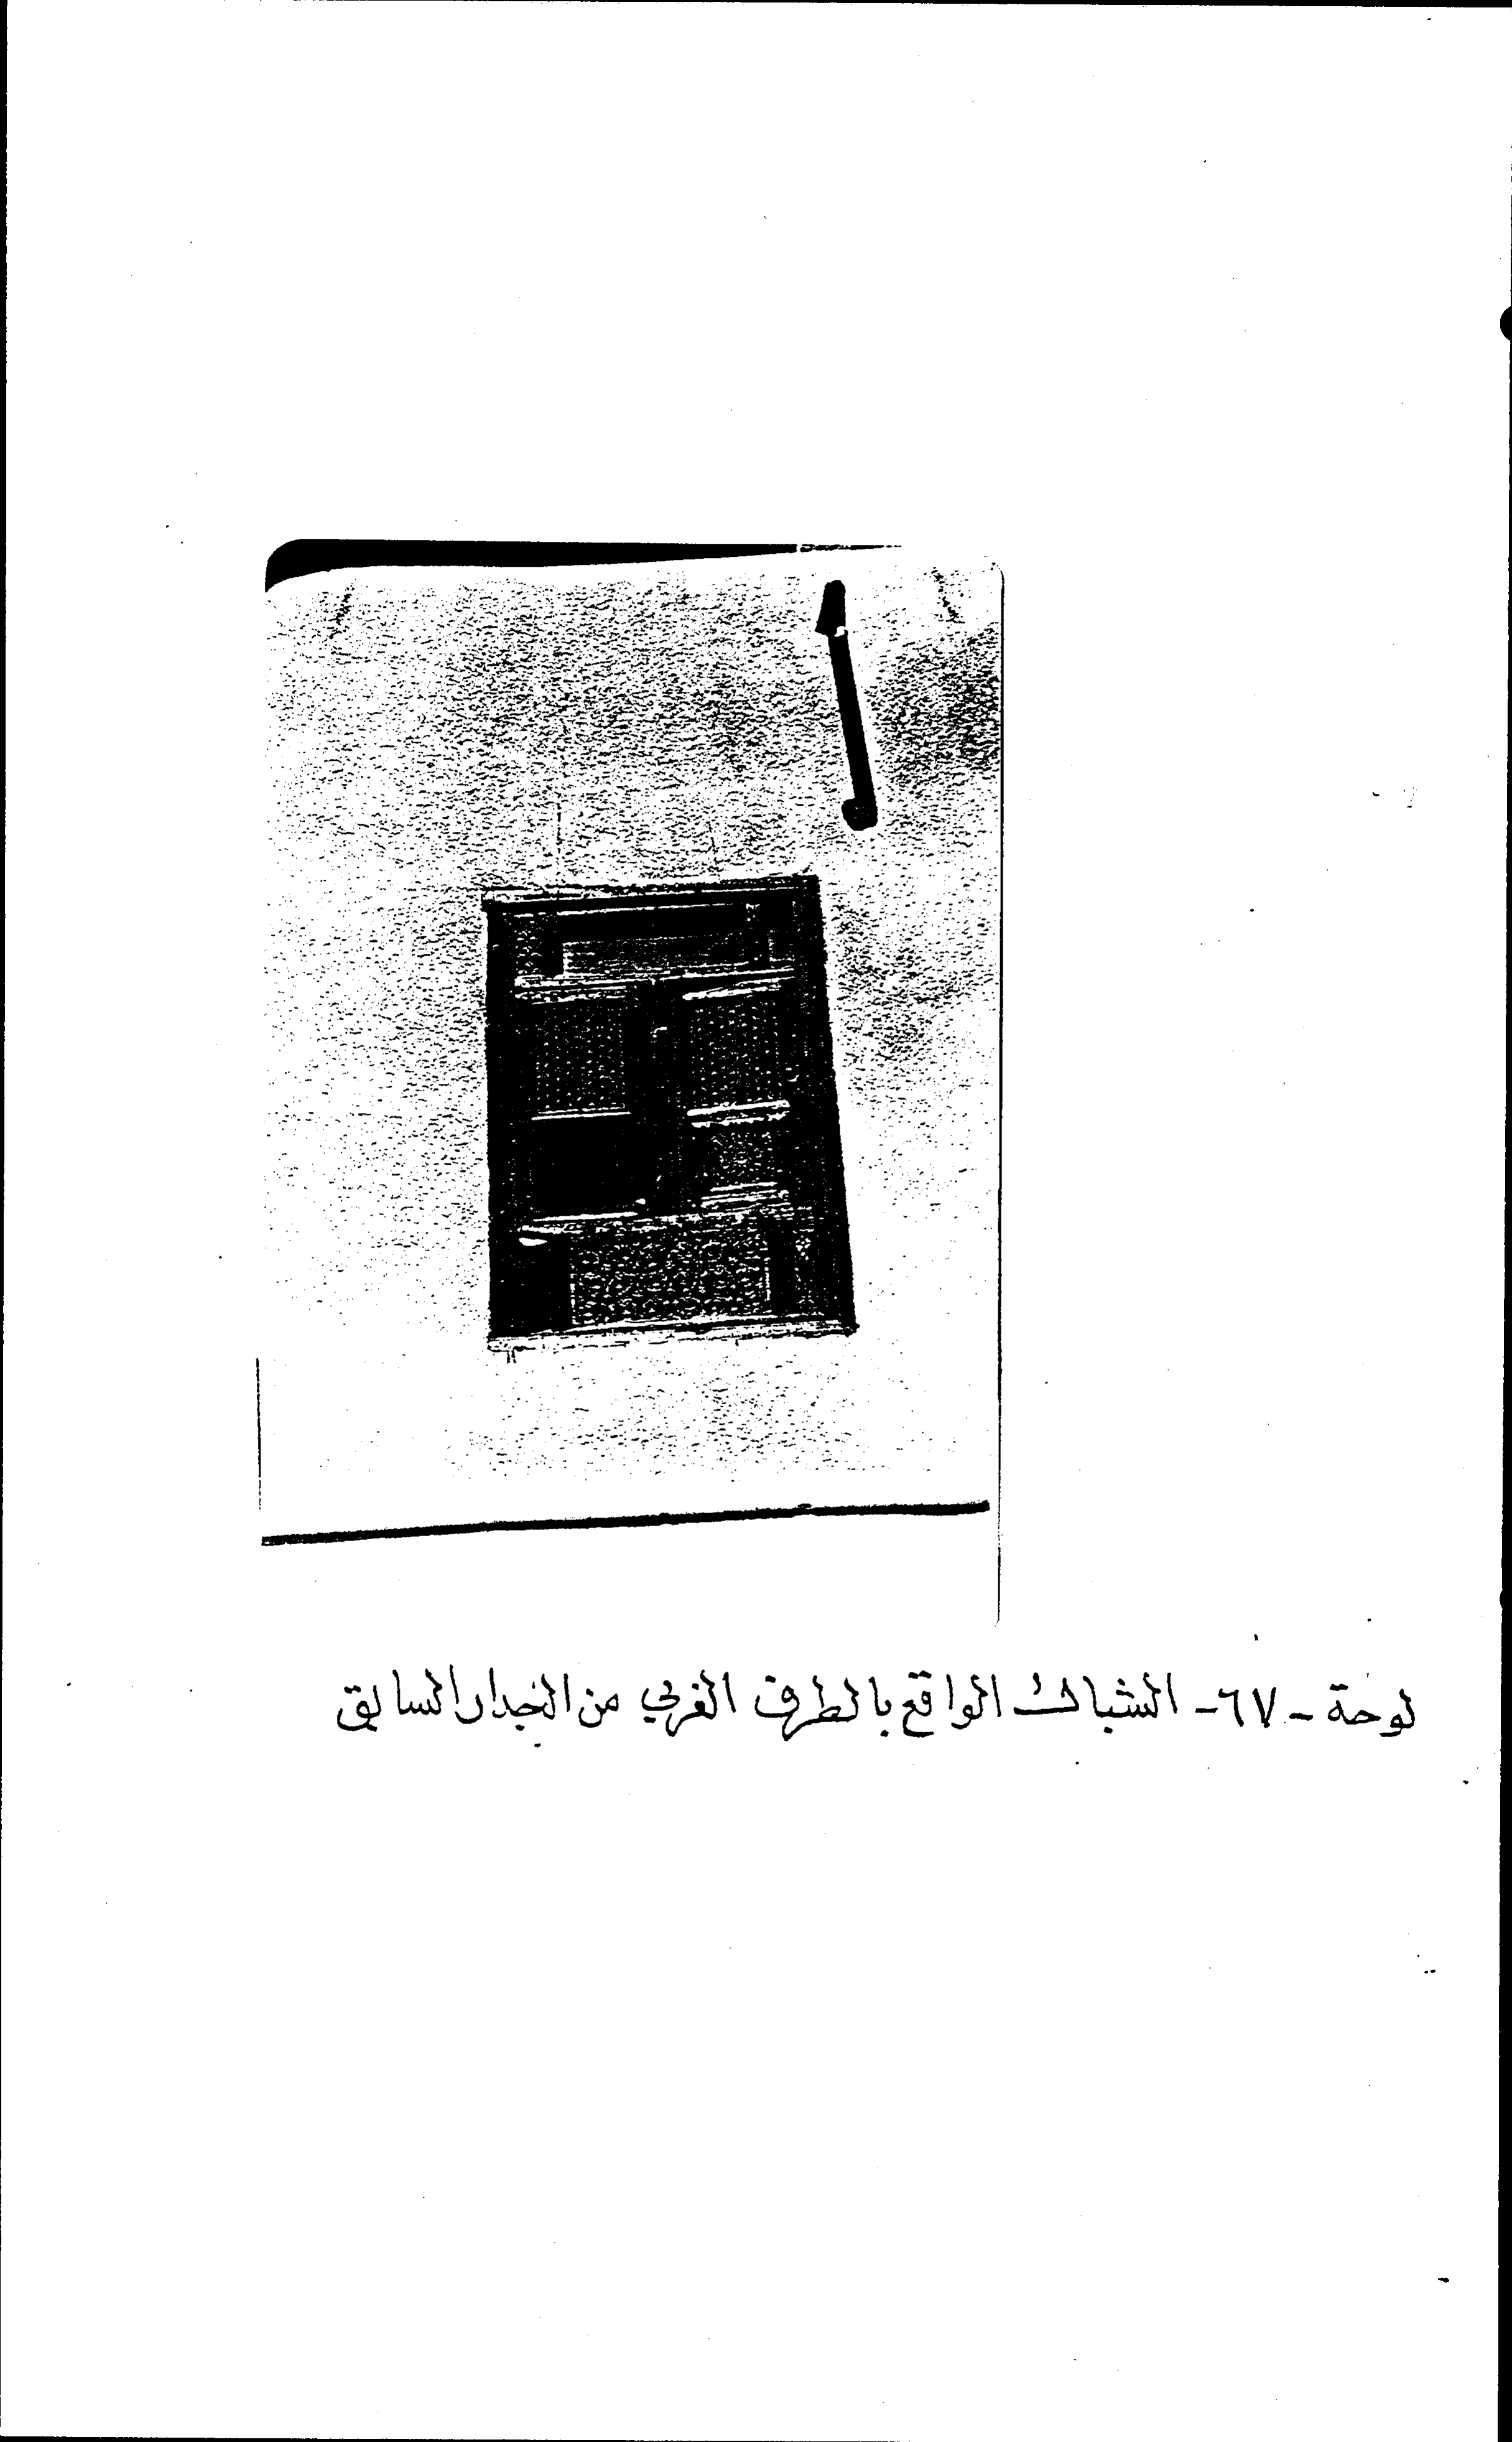 لوحة - ٦٧ - الشباك الواقع بالطرف الغربي من الجدار السابق